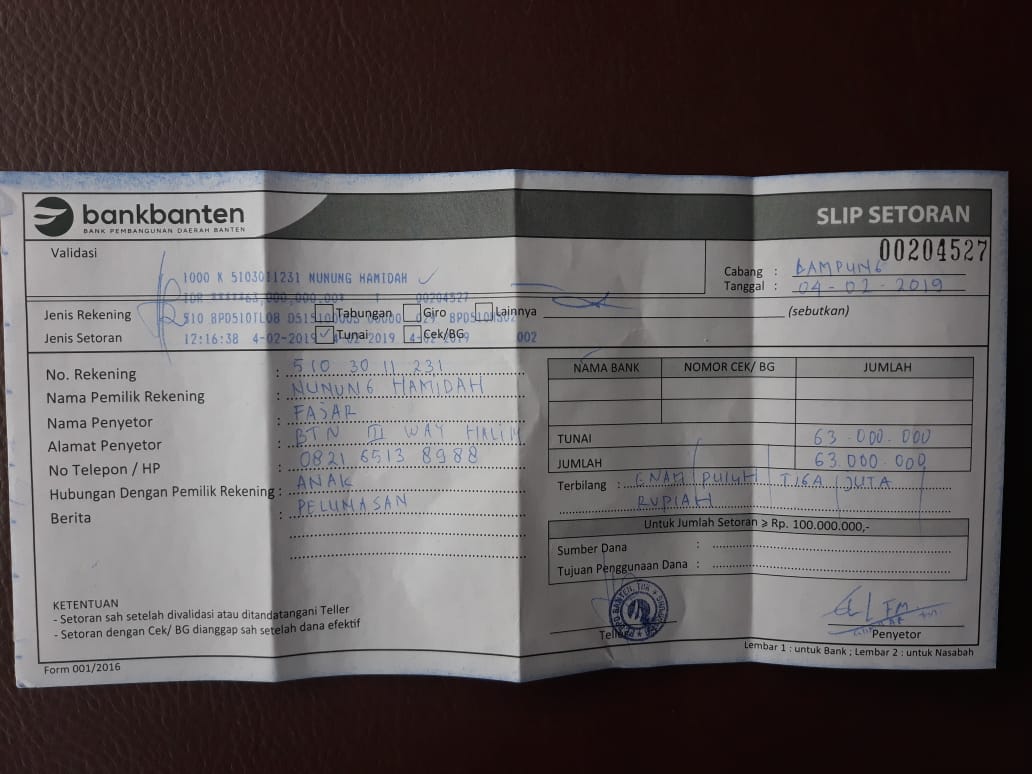 bankbanten
BANK PEMBANGUNAN DAERAH BANTEN
SLIP SETORAN
00204527
Validasi
1000 K 5103011231 NUNUNG HAMIDAH
IDR *****63,000,000.00* 00204527
Cabang : LAMPUNG
Tanggal : 04-02-2019
Jenis Rekening Tabungan Giro Lainnya (sebutkan)
510 BPD510TL08
Jenis Setoran Tunai Cek/BG
12:16:38 4-02-2019 4-02-2019 002
No. Rekening : 510 30 11 231
Nama Pemilik Rekening : NUNUNG HAMIDAH
Nama Penyetor : FAJAR
Alamat Penyetor : BTN III WAY HALIM
No Telepon / HP : 0821 6513 8988
Hubungan Dengan Pemilik Rekening : ANAK
Berita : PELUNASAN
NAMA BANK NOMOR CEK/ BG JUMLAH
TUNAI 63.000.000
JUMLAH 63.000.000
Terbilang : ENAM PULUH TIGA JUTA
RUPIAH
Untuk Jumlah Setoran ≥ Rp. 100.000.000,-
Sumber Dana :
Tujuan Penggunaan Dana :
KETENTUAN
- Setoran sah setelah divalidasi atau ditandatangani Teller
- Setoran dengan Cek/ BG dianggap sah setelah dana efektif
Teller
Penyetor
Lembar 1 : untuk Bank ; Lembar 2 : untuk Nasabah
Form 001/2016